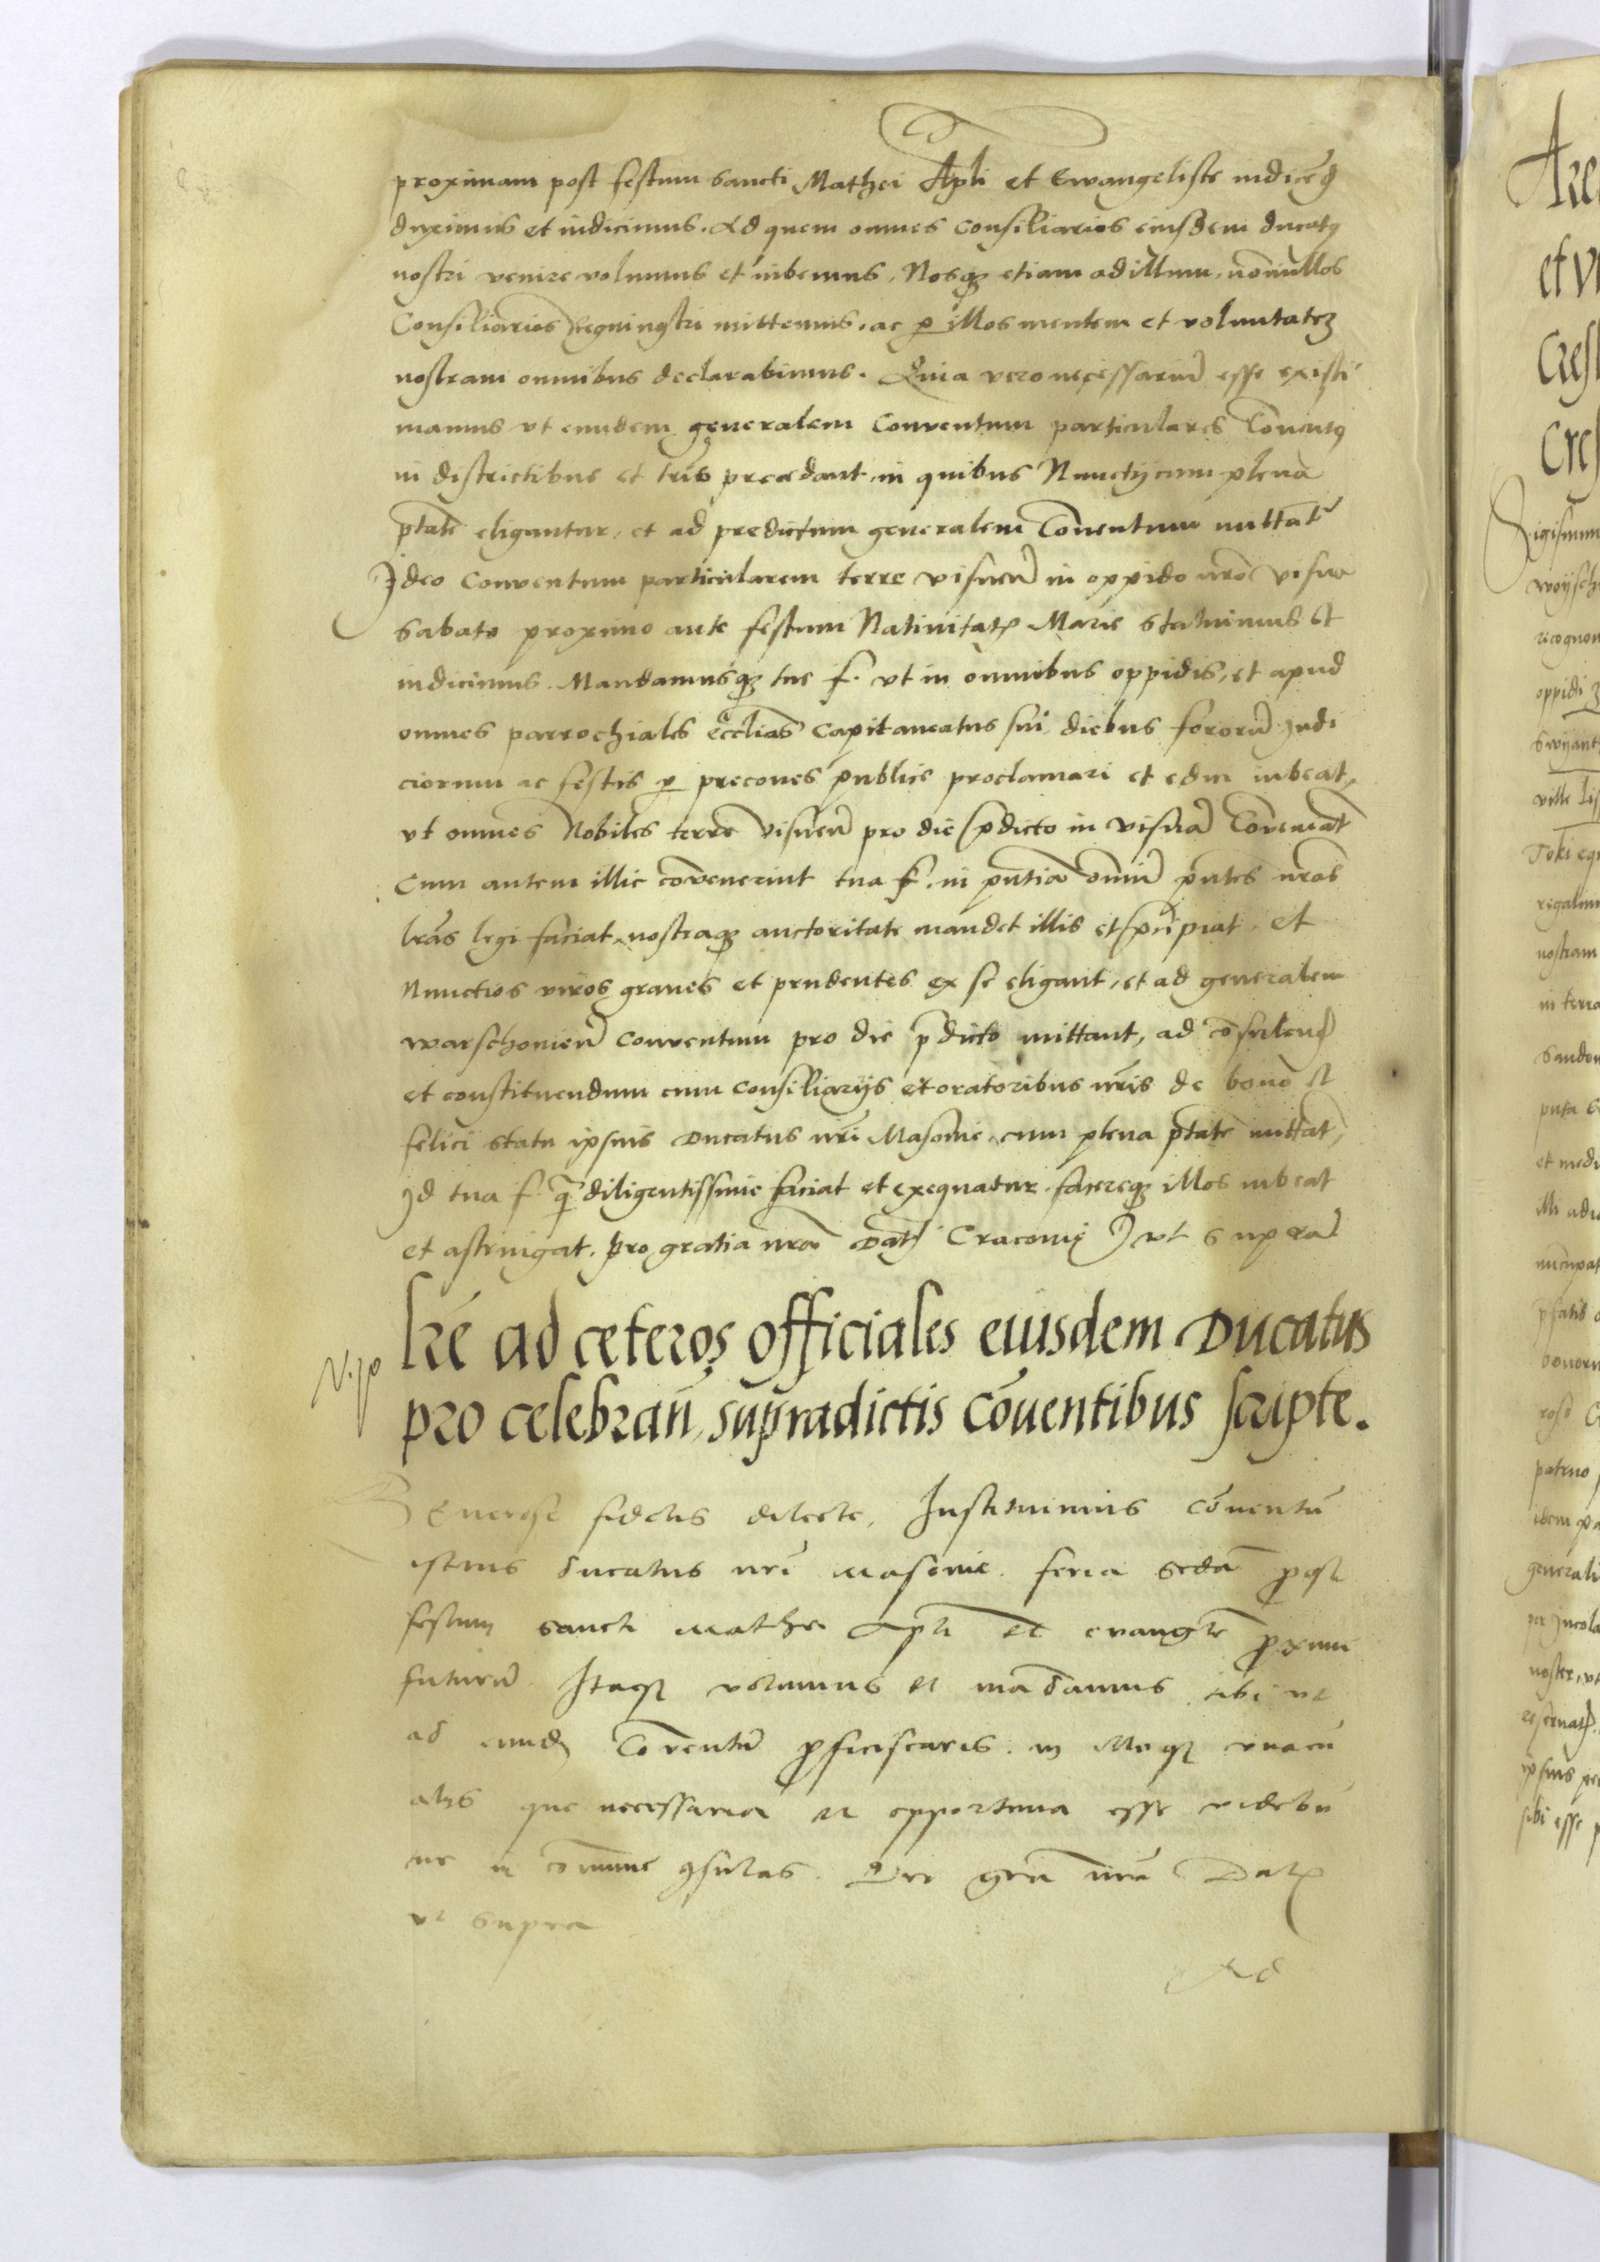 proximam post festum sancti Mathei Apli et Ewangeliste indicēd
duximus et indicimus. Ad quem omnes consiliarios eiusdem ducatꝰ
nostri venire volumus et iubemus. Nosqꝫ etiam ad illum nōnullos
Consiliarios Regni nostri mittemus. ac ꝑ illos mentem et voluntateꝫ
nostram omnibus declarabimus. Quia vero necessariū esse existi
mamus vt eundem generalem Conventum particulares Cōventꝰ
in districtibus et trīs precedant in quibus Nunctij cum plena
ptāte eligantur, et ad predictum generalem Cōventum mittātʳ
Ideo Conventum particularem terre visneñ in oppido nrō visna
sabato proximo ante festum Nativitatꝭ Marie statuimus et
indicimus. Mandamusqꝫ tue f. vt in omnibus oppidis, et apud
omnes parrochiales ecclias Capitaneatus sui diebus fororū Iudi
ciorum ac festis ꝑ precones publice proclamari et edici iubeat,
vt omnes Nobiles terre visneñ pro die p̄dicto in visna Cōveniāt
Cum autem illic cōvenerint tua f. in pn̄tia omniū pn̄tes nrās
lrās legi faciat, nostraqꝫ auctoritate mandet illis et p̄cipiat. et
Nunctios viros graues et prudentes ex se eligant, et ad generalem
warschovieñ conventum pro die p̄dicto mittant, ad cōsulenđ
et constituendum cum consiliarijs et oratoribus nrīs de bono et
felici statu ipsius Ducatus nrī Masovie cum plena ptāte mittat,
Id tua f. q̄ diligentissime faciat et exequatur. facereqꝫ illos iubeat
et astringat. pro gratia nrā Datꝭ Cracovię vt supra
lrē ad ceteros officiales eiusdem Ducatus
pro celebrañ, supradictis cōuentibus scripte.
Generose fidelis dilecte, Instituimus cōventū
istius ducatus nrī Masovie. feria secdā post
festum sancti Mathei Apli et evangtē proximū
futurū Itaqꝫ volumus et mandamus tibi vt
ad eundē Cōventū ꝓficiscaris. in illoqꝫ vnacū
alijs que necessaria et opportuna esse videbū
tur in cōmune ꝯsulas. Pro grā nrā Datꝭ
vt supra
Ad